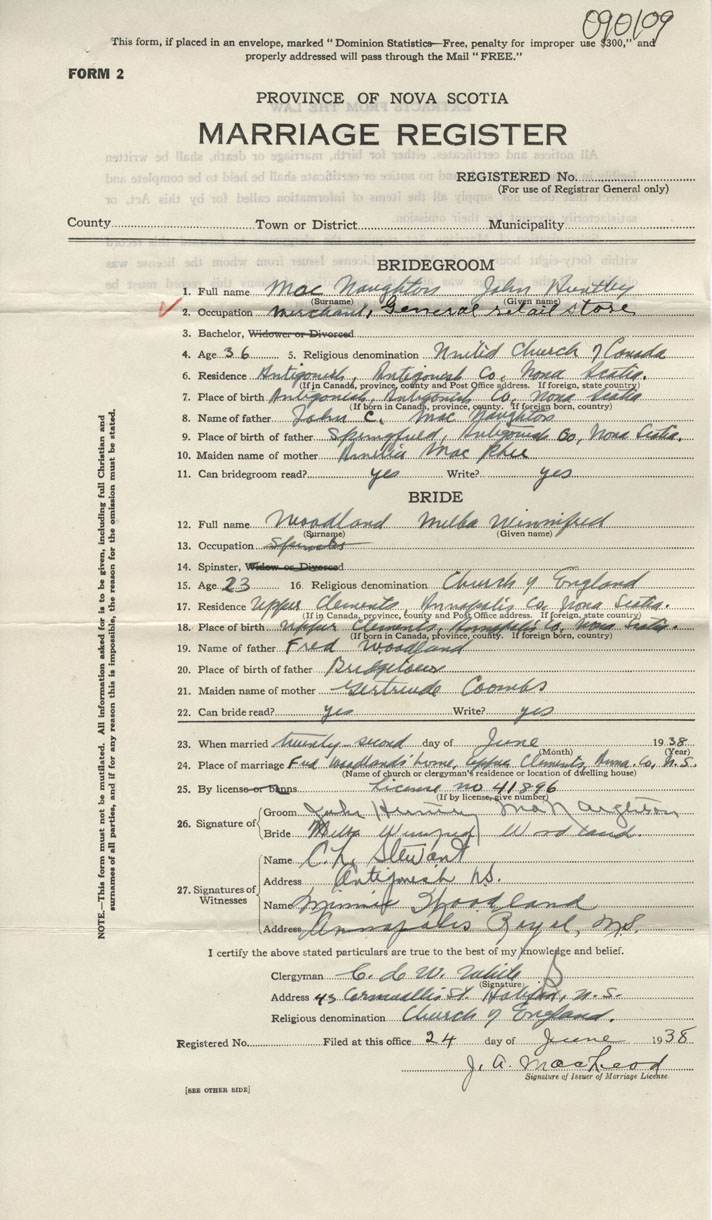 090109
This form, if placed in an envelope, marked "Dominion Statistics—Free, penalty for improper use $300," and
properly addressed will pass through the Mail "FREE."
FORM 2
PROVINCE OF NOVA SCOTIA
MARRIAGE REGISTER
REGISTERED No.
(For use of Registrar General only)
County Town or District Municipality
BRIDEGROOM
1. Full name Mac Naughton John Huntley
(Surname) (Given name)
2. Occupation Merchant, General retail store
3. Bachelor, Widower or Divorced
4. Age 36 5. Religious denomination United Church of Canada
6. Residence Antigonish, Antigonish Co, Nova Scotia.
(If in Canada, province, county and Post Office address. If foreign, state country)
7. Place of birth Antigonish, Antigonish Co, Nova Scotia
(If born in Canada, province, county. If foreign born, country)
8. Name of father John C. Mac Naughton
9. Place of father Springfield, Antigonish Co, Nova Scotia.
10. Maiden name of mother Amelia Mac Phee
11. Can bridegroom read? yes Write? yes
BRIDE
12. Full name Woodland Melba Winnifred
(Surname) (Given name)
13. Occupation Spinster
14. Spinster, Widow or Divorced
15. Age 23 16. Religious denomination Church of England
17. Residence Upper Clements, Annapolis Co, Nova Scotia.
(If in Canada, province, county and Post Office address. If foreign, state country)
18. Place of birth Upper Clements, Annapolis Co, Nova Scotia.
(If born in Canada, province, county. If foreign born, country)
19. Name of father Fred Woodland
20. Place of birth of father Bridgetown
21. Maiden name of mother Gertrude Coombs
22. Can bride read? yes Write? yes
23. When married twenty-second day of June 1938
(Month) (Year)
24. Place of marriage Fred Woodlands' home, Upper Clements, Anna. Co, N.S.
(Name of church or clergyman's residence or location of dwelling house)
25. By license or banns License no 41896
(If by license, give number)
26. Signature of Groom John Huntley MacNaughton
Bride Melba Winnifred Woodland
27. Signatures of Witnesses
Name C. L. Stewart
Address Antigonish N.S.
Name Minnie Woodland
Address Annapolis Royal, N.S.
I certify the above stated particulars are true to the best of my knowledge and belief.
Clergyman C. de W. White
(Signature)
Address 45 Cornwallis St. Halifax, N.S.
Religious denomination Church of England.
Registered No. Filed at this office 24 day of June 1938
J. A. MacLeod
Signature of Issuer of Marriage License.
[SEE OTHER SIDE]
NOTE.—This form must not be mutilated. All information asked for is to be given, including full Christian and
surnames of all parties, and if for any reason this is impossible, the reason for the omission must be stated.